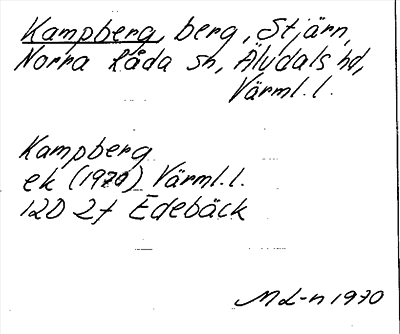 Kampberg, berg, Stjärn,
Norra Råda sn, Älvdals hd,
Värml. l.
Kampberg
ek (1970) Värml. l.
12D 2f Edebäck
M L-n 1970